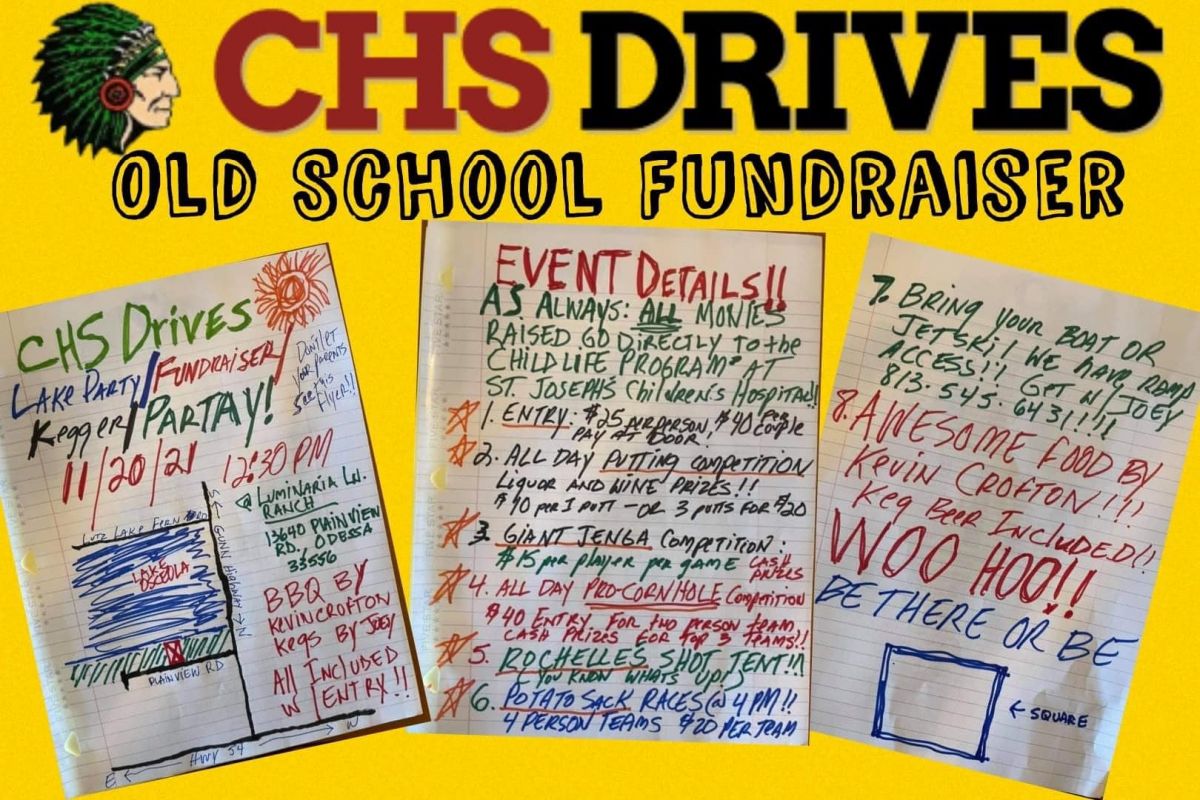 CHS DRIVES
OLD SCHOOL FUNDRAISER
CHS DRIVES
LAKE PARTY/FUNDRAISER/
Kegger/PARTAY!
DON'T LET
YOUR PARENTS
SEE THIS
FLYER!!
11/20/21 12:30 PM
@ LUMINARIA LN.
RANCH
13640 PLAINVIEW
RD., ODESSA
33556
LUTZ LAKE FERN RD
S
GUNN HIGHWAY
N
LAKE
OSEOLA
PLAINVIEW RD
BBQ BY
KEVIN CROFTON
Kegs By JOEY
All INCLUDED
W/ENTRY!!
E ← HWY 54 → W
EVENT DETAILS!!
AS ALWAYS: ALL MONIES
RAISED GO DIRECTLY TO the
CHILD LIFE PROGRAM AT
ST. JOSEPH'S Children's HOSPITAL!!
1. ENTRY: $25 PER PERSON, $40 PER COUPLE
PAY AT DOOR
2. ALL DAY PUTTING COMPETITION
LIQUOR AND WINE PRIZES!!
$10 per 1 PUTT - OR 3 PUTTS FOR $20
3. GIANT JENGA COMPETITION:
$15 per player per game CASH PRIZES
4. ALL DAY PRO-CORNHOLE COMPETITION
$40 ENTRY FOR TWO PERSON TEAM
CASH PRIZES FOR TOP 3 TEAMS!!
5. ROCHELLES SHOT TENT!!
(YOU KNOW WHATS UP!)
6. POTATO SACK RACES @ 4 PM!!
4 PERSON TEAMS $20 PER TEAM
7. BRING YOUR BOAT OR
JETSKI! WE HAVE RAMP
ACCESS!! GET W/ JOEY
813.545.6431!!!!
8. AWESOME FOOD BY
KEVIN CROFTON!!!
Keg BEER INCLUDED!!
WOO HOO!!
BE THERE OR BE
← SQUARE